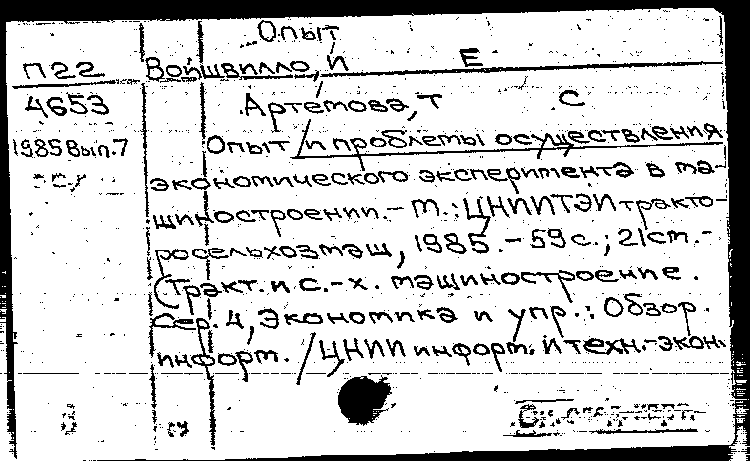 Опыт
П22 Войшвилло, И Е
4653 Артемова, Т С
1985 Вып.7 Опыт и проблемы осуществления
экономического эксперимента в ма-
шиностроении. - М.: ЦНИИТЭИ тракто-
росельхозмаш, 1985. - 59 с.; 21 см. -
(Тракт. и с.-х. машиностроение.
Сер. 4, Экономика и упр.: Обзор.
информ. / ЦНИИ информ. и техн.-экон.